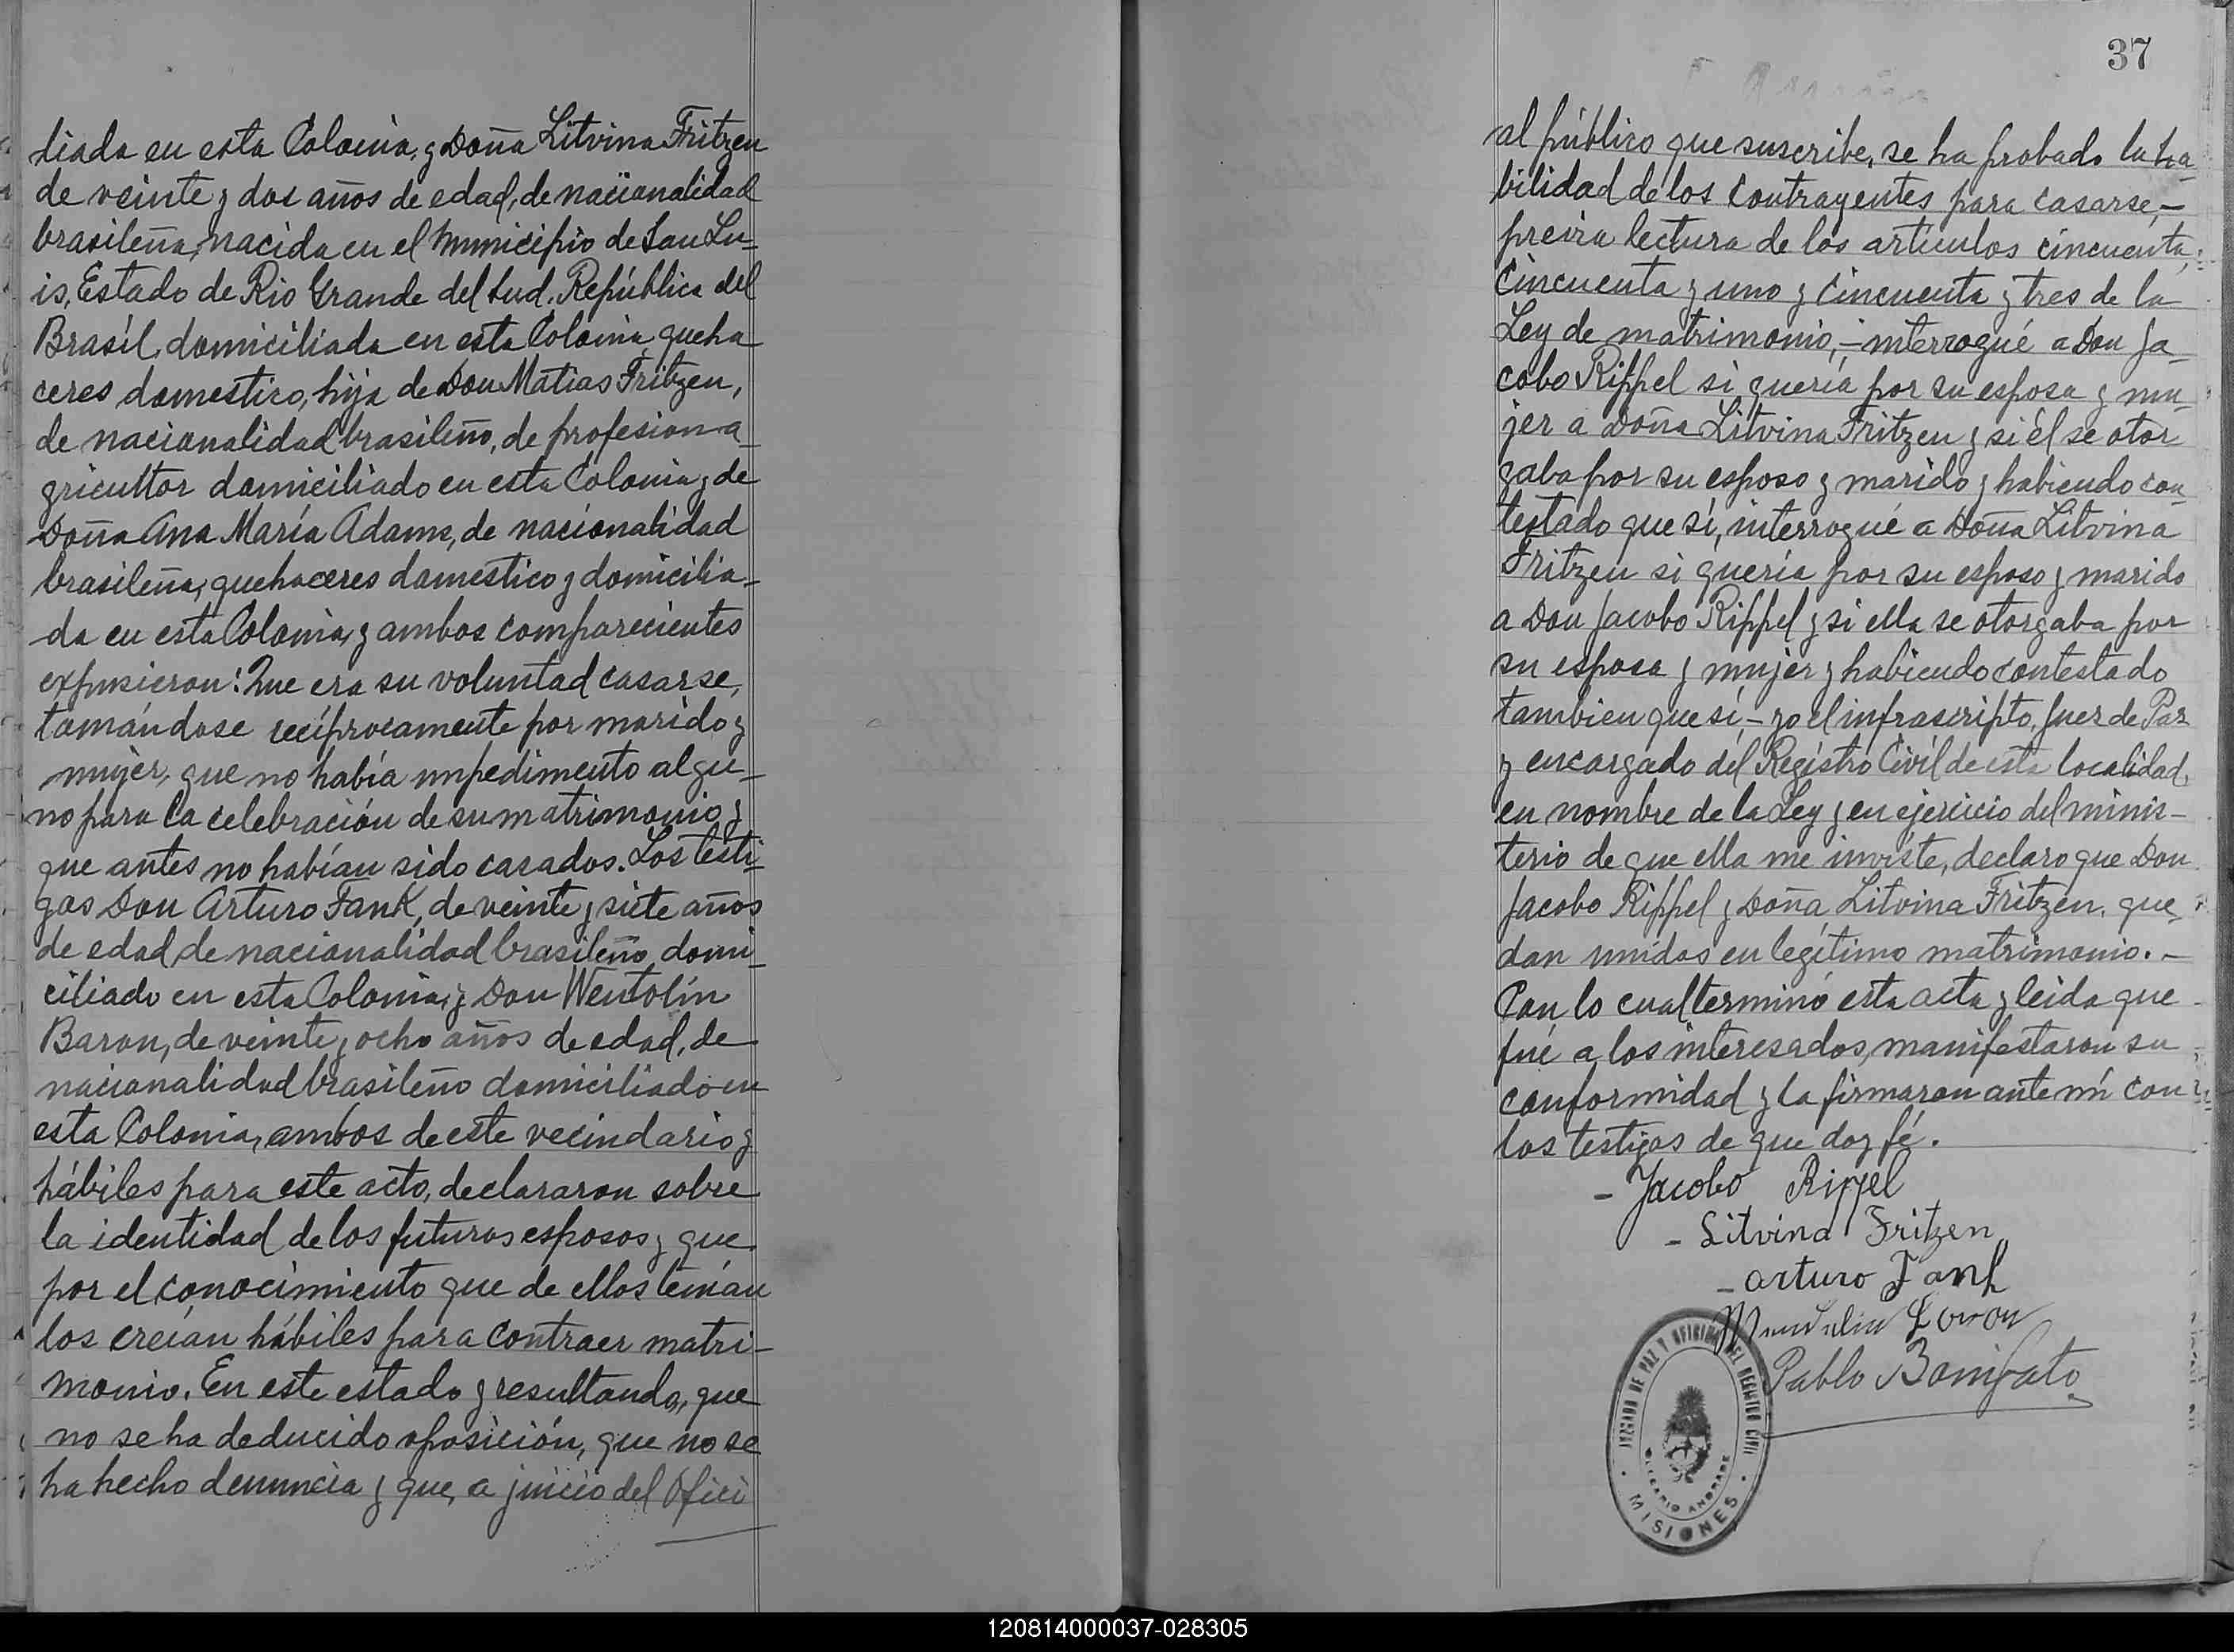 liada en esta Colonia, y Doña Litvina Fritzen
de veinte y dos años de edad, de nacionalidad
brasileña, nacida en el Municipio de San Lu-
is, Estado de Rio Grande del Sud. República del
Brasil, domiciliada en esta Colonia, queha
ceres domestico, hija de Don Matias Fritzen,
de nacionalidad brasileño, de profesion a-
gricultor domiciliado en esta Colonia y de
Doña Ana María Adams, de nacionalidad
brasileña, quehaceres domestico y domicilia-
da en esta Colonia, y ambos comparecientes
expusieron: Que era su voluntad casarse,
tomándose recíprocamente por marido y
mujer, que no había impedimento algu-
no para la celebración de su matrimonio y
que antes no habían sido casados. Los testi-
gos Don Arturo Fank, de veinte y siete años
de edad, de nacionalidad brasileño, domi-
ciliado en esta Colonia, y Don Wentolín
Baron, de veinte y ocho años de edad, de
nacionalidad brasileño domiciliado en
esta Colonia, ambos de este vecindario y
hábiles para este acto, declararon sobre
la identidad de los futuros esposos y que
por el conocimiento que de ellos tenían
los creían hábiles para contraer matri-
monio. En este estado y resultando, que
no se ha deducido oposición, que no se
ha hecho denuncia y que, a juicio del Ofici
37
al público que suscribe, se ha probado la ha-
bilidad de los contrayentes para casarse,-
previa lectura de los artículos cincuenta,
cincuenta y uno y cincuenta y tres de la
Ley de matrimonio,- interrogué a Don Ja-
cobo Rippel si quería por su esposa y mu-
jer a Doña Litvina Fritzen y si él se otor
gaba por su esposo y marido y habiendo con-
testado que sí, interrogué a Doña Litvina
Fritzen si quería por su esposo y marido
a Don Jacobo Rippel y si ella se otorgaba por
su esposa y mujer y habiendo contestado
tambien que sí,- yo el infrascripto, Juez de Paz
y encargado del Registro Civil de esta localidad,
en nombre de la Ley y en ejercicio del minis-
terio de que ella me inviste, declaro que Don
Jacobo Rippel y Doña Litvina Fritzen, que-
dan unidos en legítimo matrimonio.-
Con lo cual terminó esta acta y leida que
fué a los interesados, manifestaron su
conformidad y la firmaron ante mí con
los testigos de que doy fé.
- Jacobo Rippel
- Litvina Fritzen
- Arturo Fank
Pablo Bonifato
JUZGADO DE PAZ Y OFICINA DEL REGISTRO CIVIL
OLEGARIO ANDRADE
MISIONES
120814000037-028305